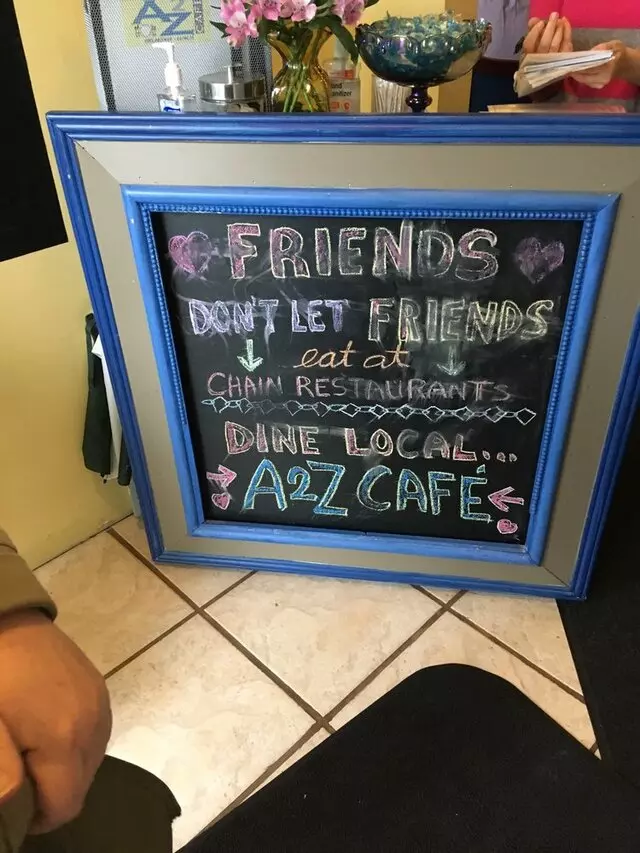 A2Z
FRIENDS
DON'T LET FRIENDS
eat at
CHAIN RESTAURANTS
DINE LOCAL...
A2Z CAFÉ